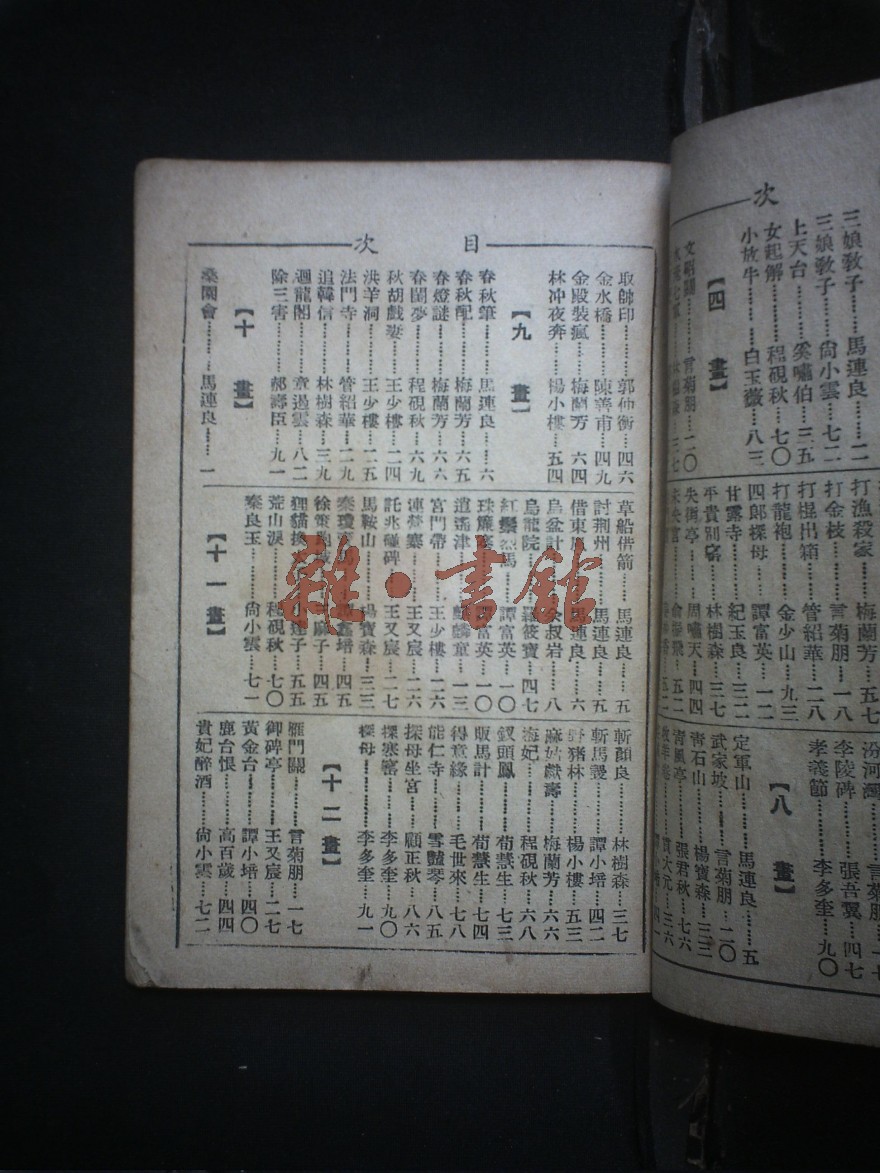 次
三娘教子……馬連良……二
三娘教子……尙小雲……七二
上天台……奚嘯伯……三五
女起解……程硯秋……七〇
小放牛……白玉薇……八三
【四 畫】
言菊朋……二〇
打漁殺家……梅蘭芳……五七
打金枝……言菊朋……一八
打棍出箱……管紹華……二八
打龍袍……金少山……九三
四郎探母……譚富英……一二
甘露寺……紀玉良……三二
平貴別窰……林樹森……三七
失街亭……周嘯天……四四
汾河灣……言菊朋……一七
李陵碑……張吾翼……四七
孝義節……李多奎……九〇
【八 畫】
定軍山……馬連良……五
武家坡……言菊朋……二〇
青石山……楊寶森……三三
青風亭……張君秋……七六
貫大元……三六
目 次
取帥印……郭仲衡……四六
金水橋……陳善甫……四九
金殿裝瘋……梅蘭芳……六四
林冲夜奔……楊小樓……五四
【九 畫】
春秋筆……馬連良……六
春秋配……梅蘭芳……六五
春燈謎……梅蘭芳……六六
春閨夢……程硯秋……六九
秋胡戲妻……王少樓……二四
洪羊洞……王少樓……二五
法門寺……管紹華……二九
追韓信……林樹森……三九
迴龍閣……章遏雲……八二
除三害……郝壽臣……九一
【十 畫】
桑園會……馬連良……一
草船借箭……馬連良……五
討荆州……馬連良……五
借東……馬連良……六
烏盆計……余叔岩……八
烏龍院……羅筱寶……四七
紅鬃烈馬……譚富英……一〇
珠簾寨……譚富英……一〇
逍遙津……麒麟童……一三
宮門帶……王少樓……二六
連營寨……王少樓……二六
託兆碰碑……王又宸……二七
馬鞍山……楊寶森……三三
四五
徐策跑城……麻子……四五
狸貓換……小達子……五五
荒山淚……程硯秋……七〇
秦良玉……尙小雲……七一
【十一畫】
斬顏良……林樹森……三七
斬馬謖……譚小培……四二
野猪林……楊小樓……五三
麻姑獻壽……梅蘭芳……六六
梅妃……程硯秋……六八
釵頭鳳……荀慧生……七三
販馬計……荀慧生……七四
得意緣……毛世來……七八
能仁寺……雪豔琴……八五
探母坐宮……顧正秋……八六
探寒窰……李多奎……九〇
探母……李多奎……九一
【十二畫】
雁門關……言菊朋……一七
御碑亭……王又宸……二七
黃金台……譚小培……四〇
鹿台恨……高百歲……四四
貴妃醉酒……尙小雲……七二
雜·書館